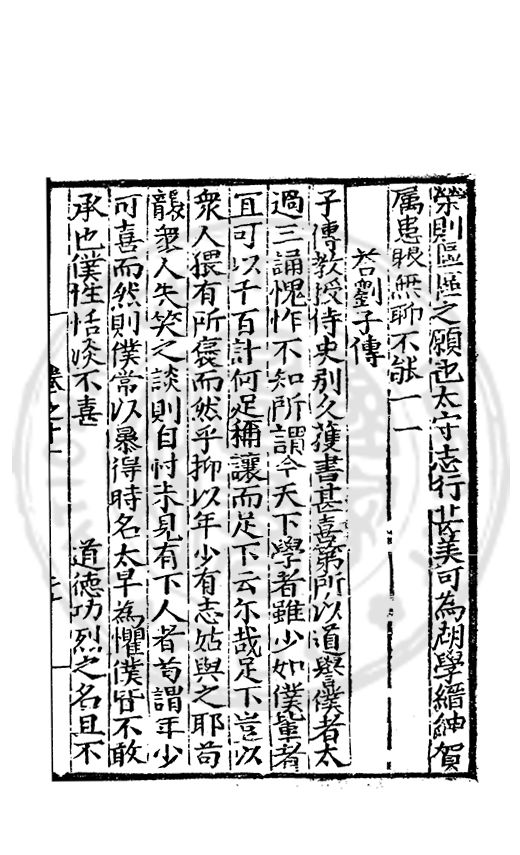 榮則區區之願也太守志行甚美可為湖學縉紳賀
属患眼無聊不能一一
答劉子傳
子傳教授侍史别久獲書甚喜第所以道譽僕者太
過三誦愧怍不知所謂今天下學者雖少如僕軰者
冝可以千百計何足稱讓而足下云尔哉足下豈以
衆人猥有所褒而然乎抑以年少有志姑與之耶苟
襲衆人失笑之談則自忖未見有下人者苟謂年少
可喜而然則僕常以㬥得時名太早為懼僕皆不敢
承也僕性恬淡不喜 道德功烈之名且不
卷之十一